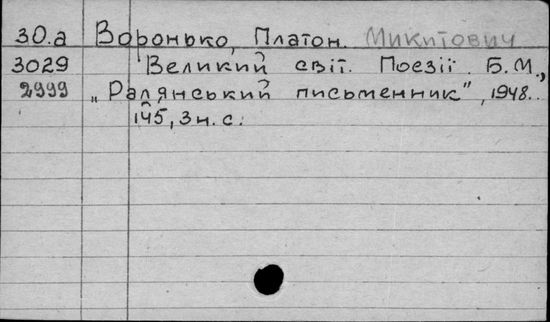 30.а Воронько, Платон. Микитович
3029 Великий світ. Поезії. Б.М.,
2999 „Радянський письменник", 1948.
145, 3 н. с.